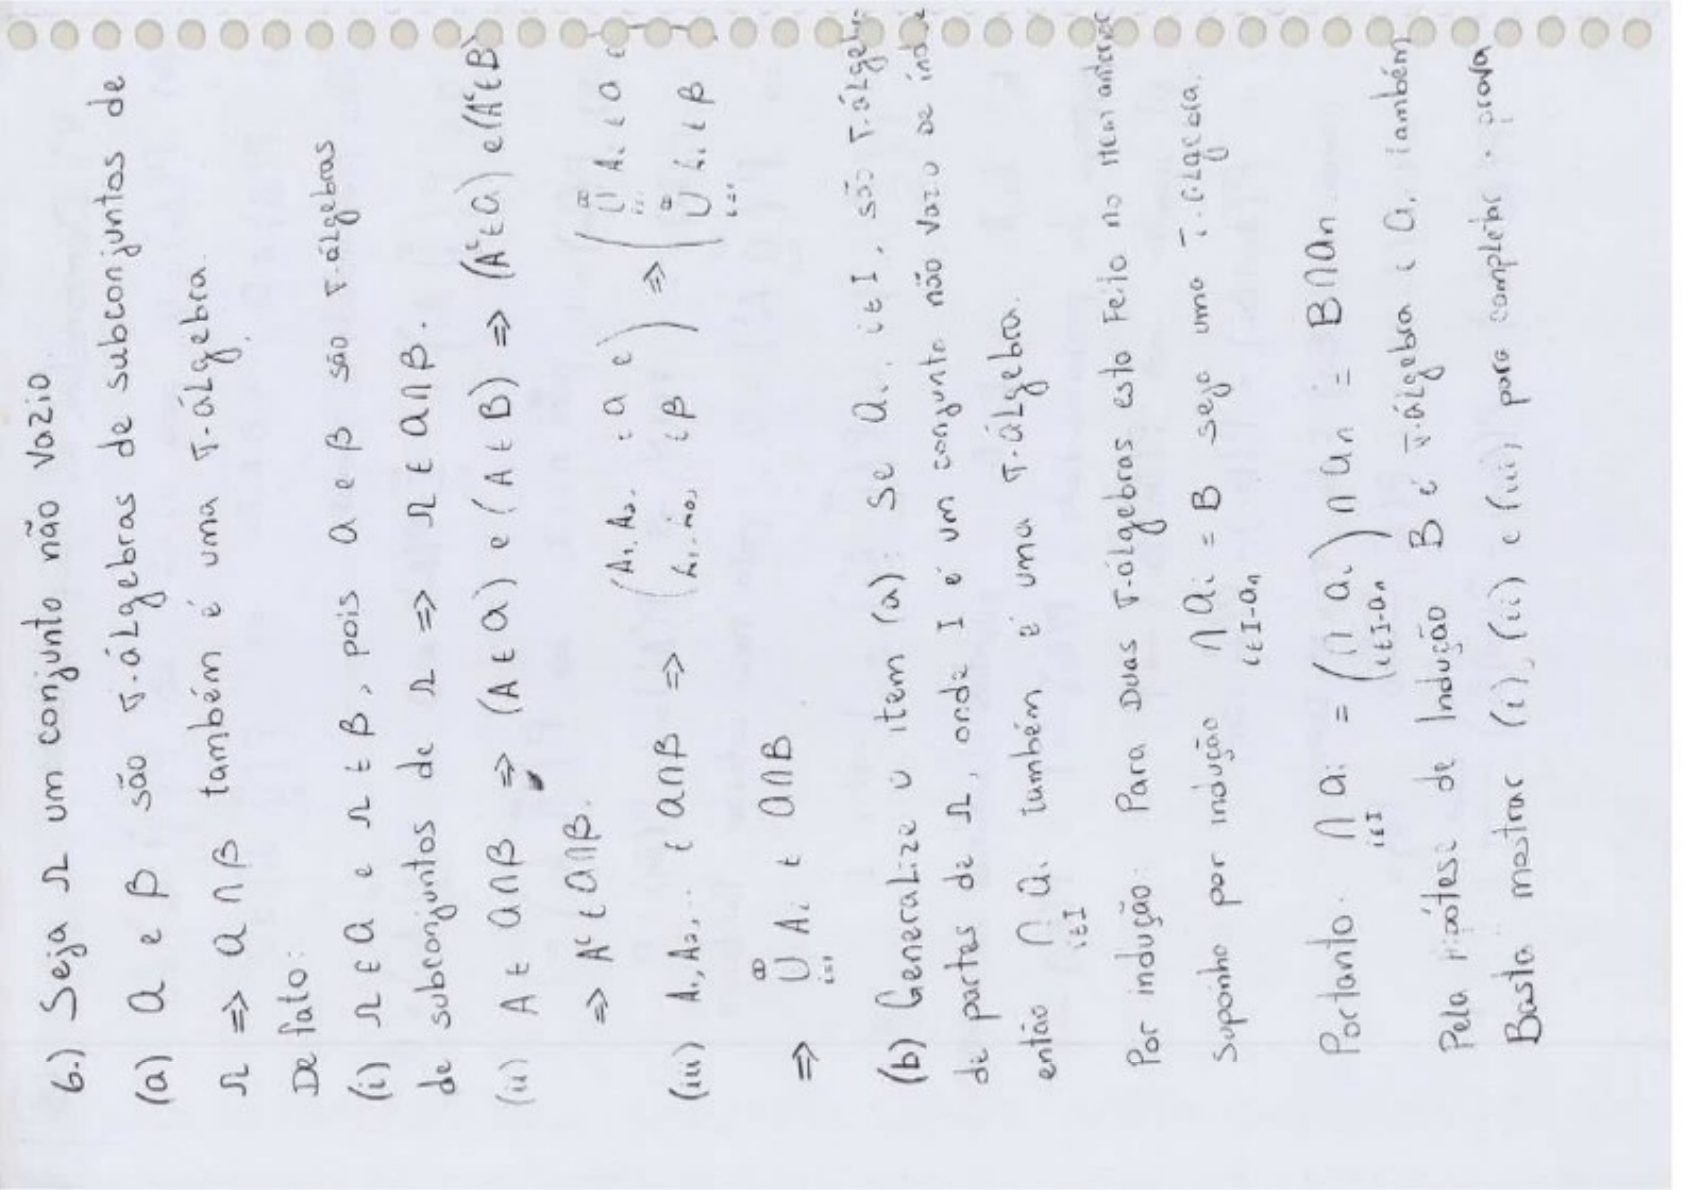 6.) Seja Ω um conjunto não vazio
(a) a e β são σ-álgebras de subconjuntos de
Ω ⇒ a ∩ β também é uma σ-álgebra.
De fato:
(i) Ω ∈ a e Ω ∈ β, pois a e β são σ-álgebras
de subconjuntos de Ω ⇒ Ω ∈ a∩β.
(ii) A ∈ a∩β ⇒ (A ∈ a) e (A ∈ B) ⇒ (Aᶜ ∈ a) e (Aᶜ ∈ B)
⇒ Aᶜ ∈ a∩β.
(iii) A₁, A₂, ... ∈ a∩β ⇒ (A₁, A₂, ∈ a e / A₁, A₂, ∈ β) ⇒ (⋃_{i=1}^∞ Aᵢ ∈ a e / ⋃_{i=1}^∞ Aᵢ ∈ β)
⇒ ⋃_{i=1}^∞ Aᵢ ∈ a∩B
(b) Generalize o item (a): Se aᵢ, i ∈ I, são σ-álgeb
de partes de Ω, onde I é um conjunto não vazio de índ
então ⋂_{i∈I} aᵢ também é uma σ-álgebra.
Por indução: Para Duas σ-álgebras esta Feito no item anterior
Suponha por indução ⋂_{i∈I-aₙ} aᵢ = B seja uma σ-álgebra.
Portanto. ⋂_{i∈I} aᵢ = (⋂_{i∈I-aₙ} aᵢ) ∩ aₙ = B∩aₙ
Pela Hipótese de Indução B é σ-álgebra e aᵢ também
Basta mostrar (i), (ii) e (iii) para completar a prova